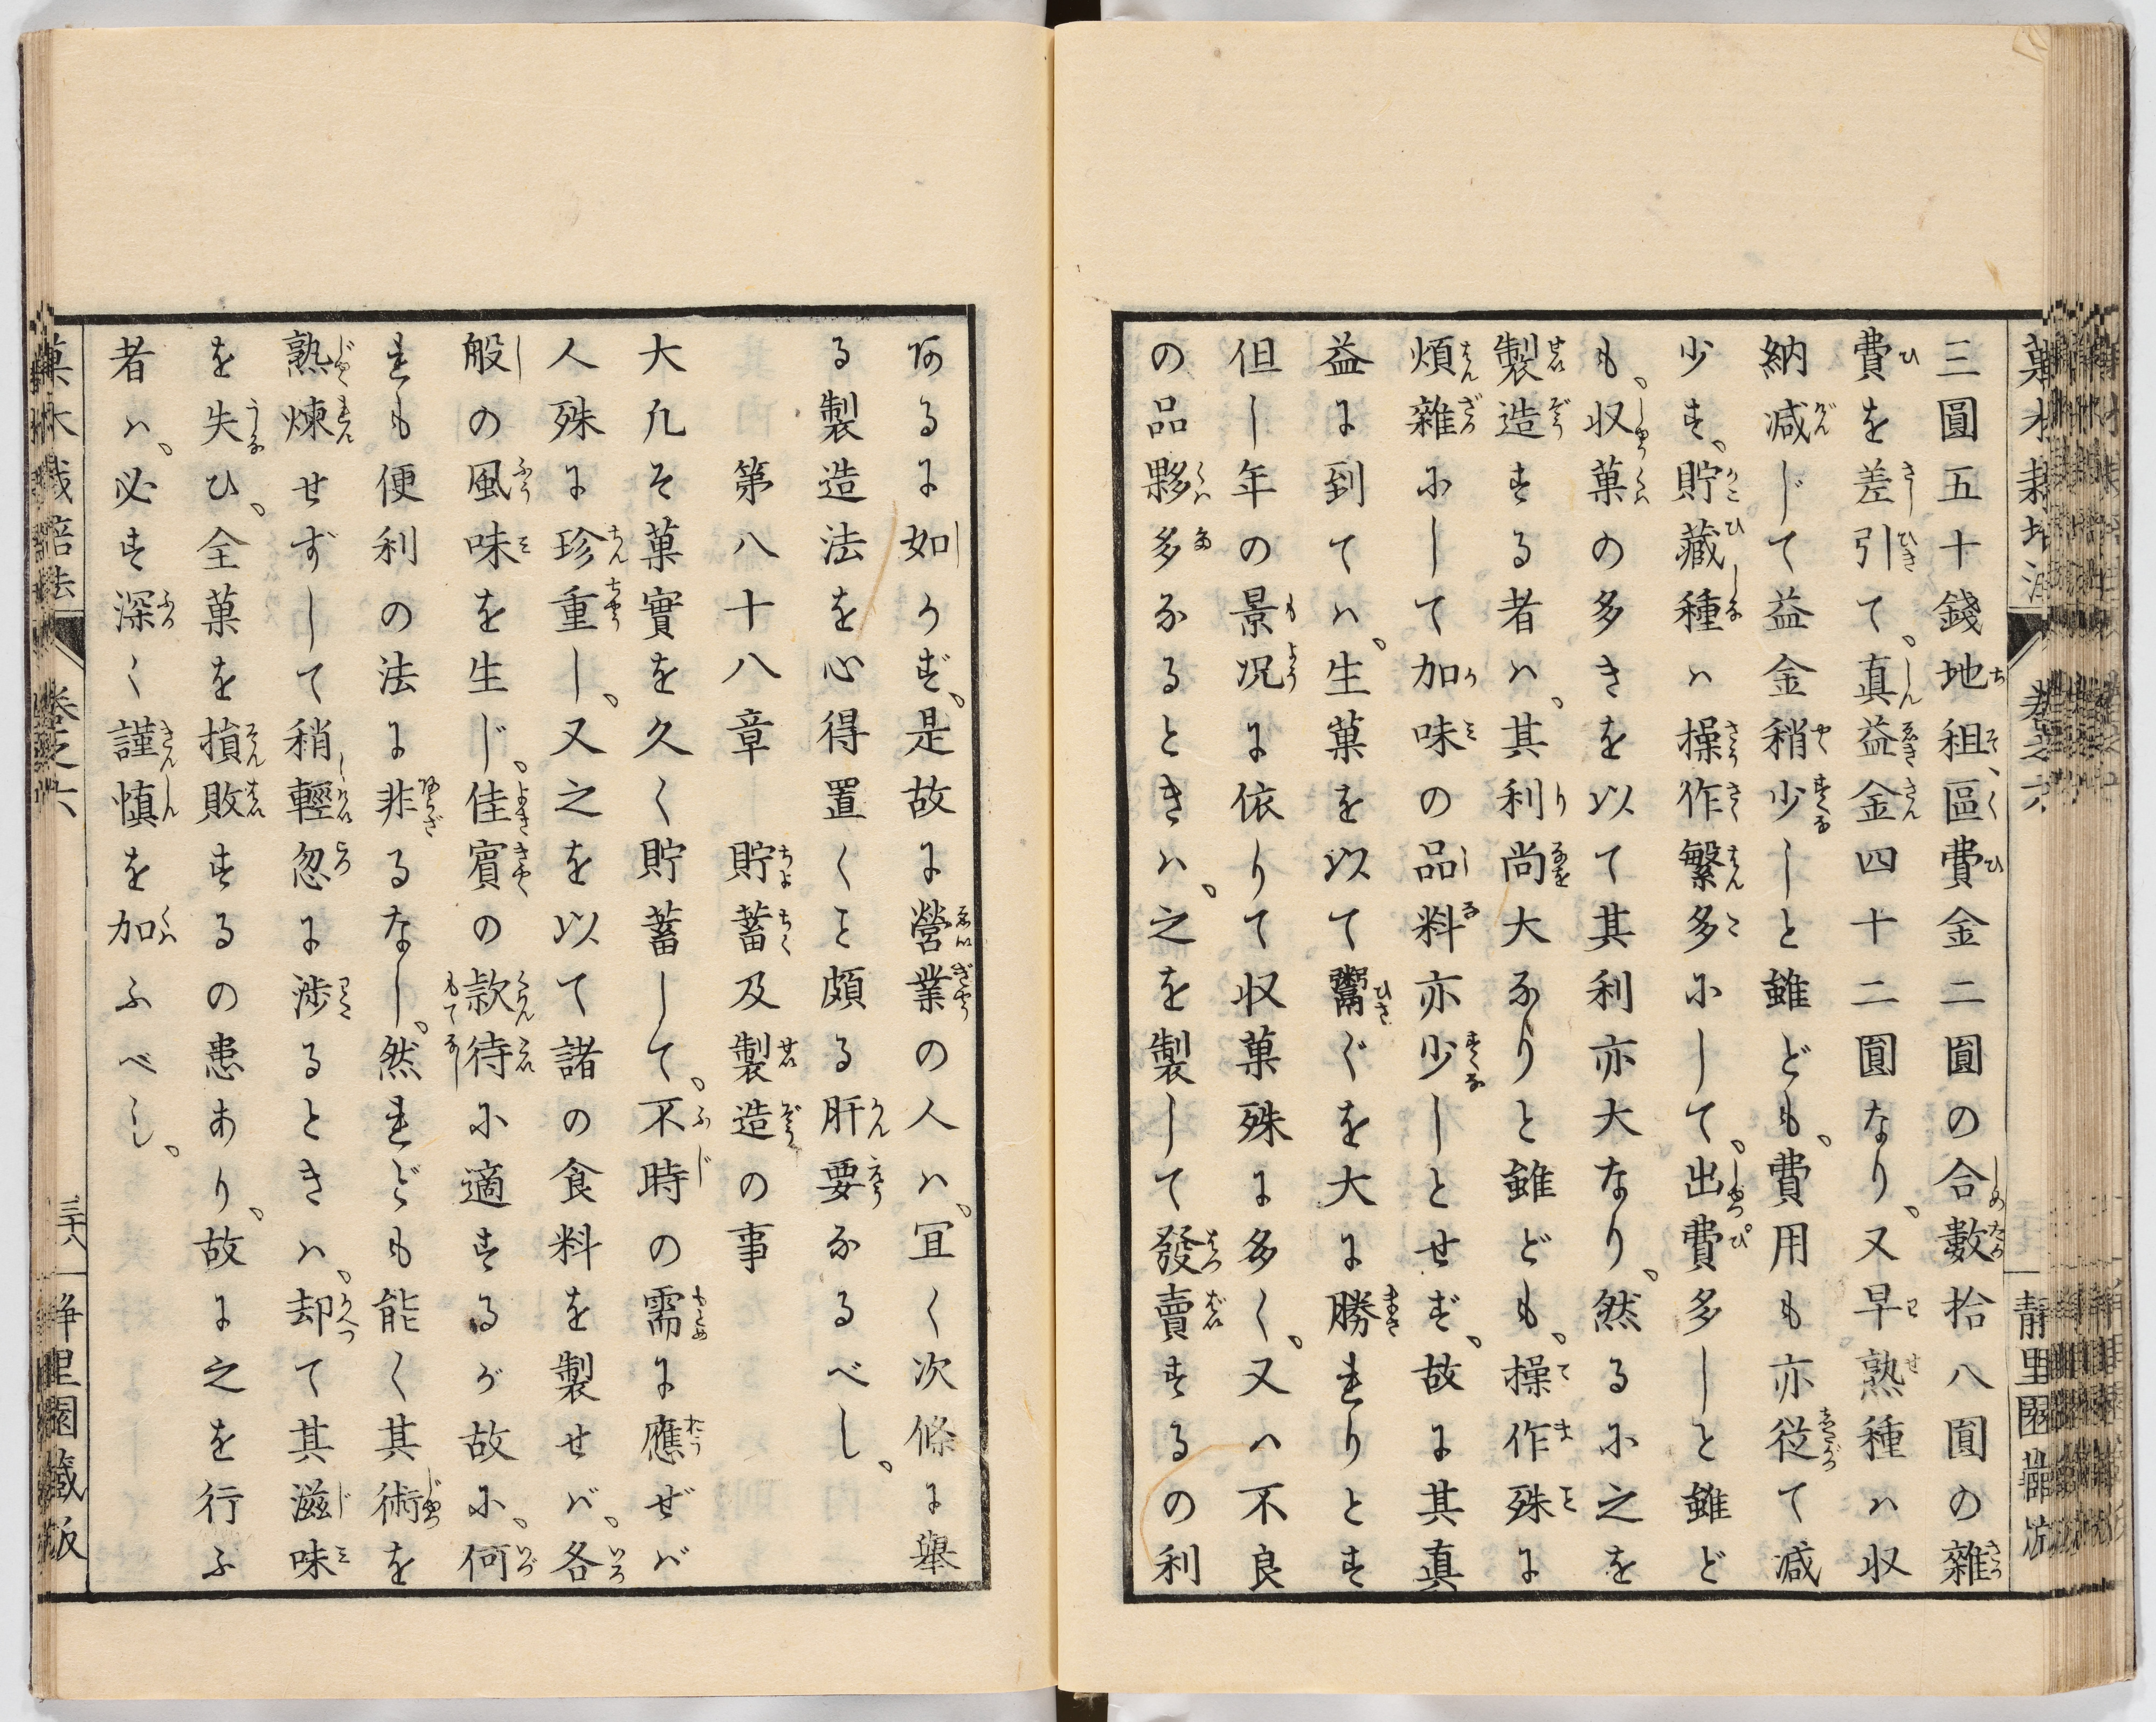 三圓五十錢地租、區費金二圓の合數拾八圓の雜
費を差引て、真益金四十二圓なり、又早熟種ハ収
納減じて益金稍少しと雖ども、費用も亦従て減
少す、貯藏種ハ操作繁多にして、出費多しと雖ど
も、収菓の多きを以て其利亦大なり、然るに之を
製造する者ハ、其利尚大なりと雖ども、操作殊に
煩雜にして加味の品料亦少しとせず、故に其真
益に到てハ、生菓を以て鬻ぐを大に勝れりとす
但し年の景況に依りて収菓殊に多く、又ハ不良
の品夥多なるときハ、之を製して發賣するの利
あるに如かず、是故に營業の人ハ、宜く次條に舉
る製造法を心得置くこと頗る肝要なるべし、
第八十八章　貯蓄及製造の事
大凡そ菓實を久く貯蓄して、不時の需に應ぜバ
人殊に珍重し、又之を以て諸の食料を製せバ、各
般の風味を生じ、佳賓の款待に適するが故に、何
れも便利の法に非るなし、然れども能く其術を
熟煉せずして稍輕忽に渉るときハ、却て其滋味
を失ひ、全菓を損敗するの患あり、故に之を行ふ
者ハ、必す深く謹慎を加ふべし、
菓木栽培法　卷之六　三十八　静里園藏版